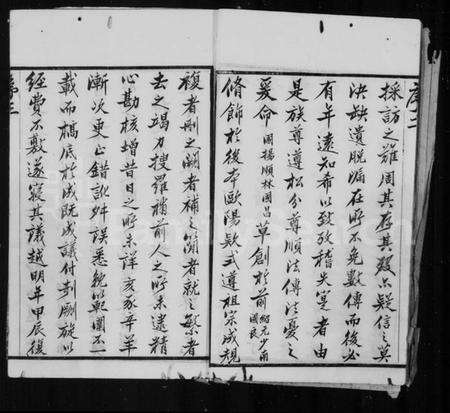 序二
採訪之難周其存其歿亦疑信之莫
決缺遺脫漏在所不免數傳而後必
有年遠知希以致考稽失實者由
是族尊遵松公尊順法傳公憂之
爰命國楊順林國昌草創於前紹元少南國良
脩飾於後本歐陽欵式遵祖宗成規
複者刪之闕者補之簡者就之繁者
去之竭力搜羅補前人之所未逮精
心勘核增昔日之所未詳亥豕辛羊
漸次更正錯訛舛誤悉就範圍不一
載而稿底於成既成議付剞劂旋以
經費不敷遂寢其議越明年甲辰復
序三